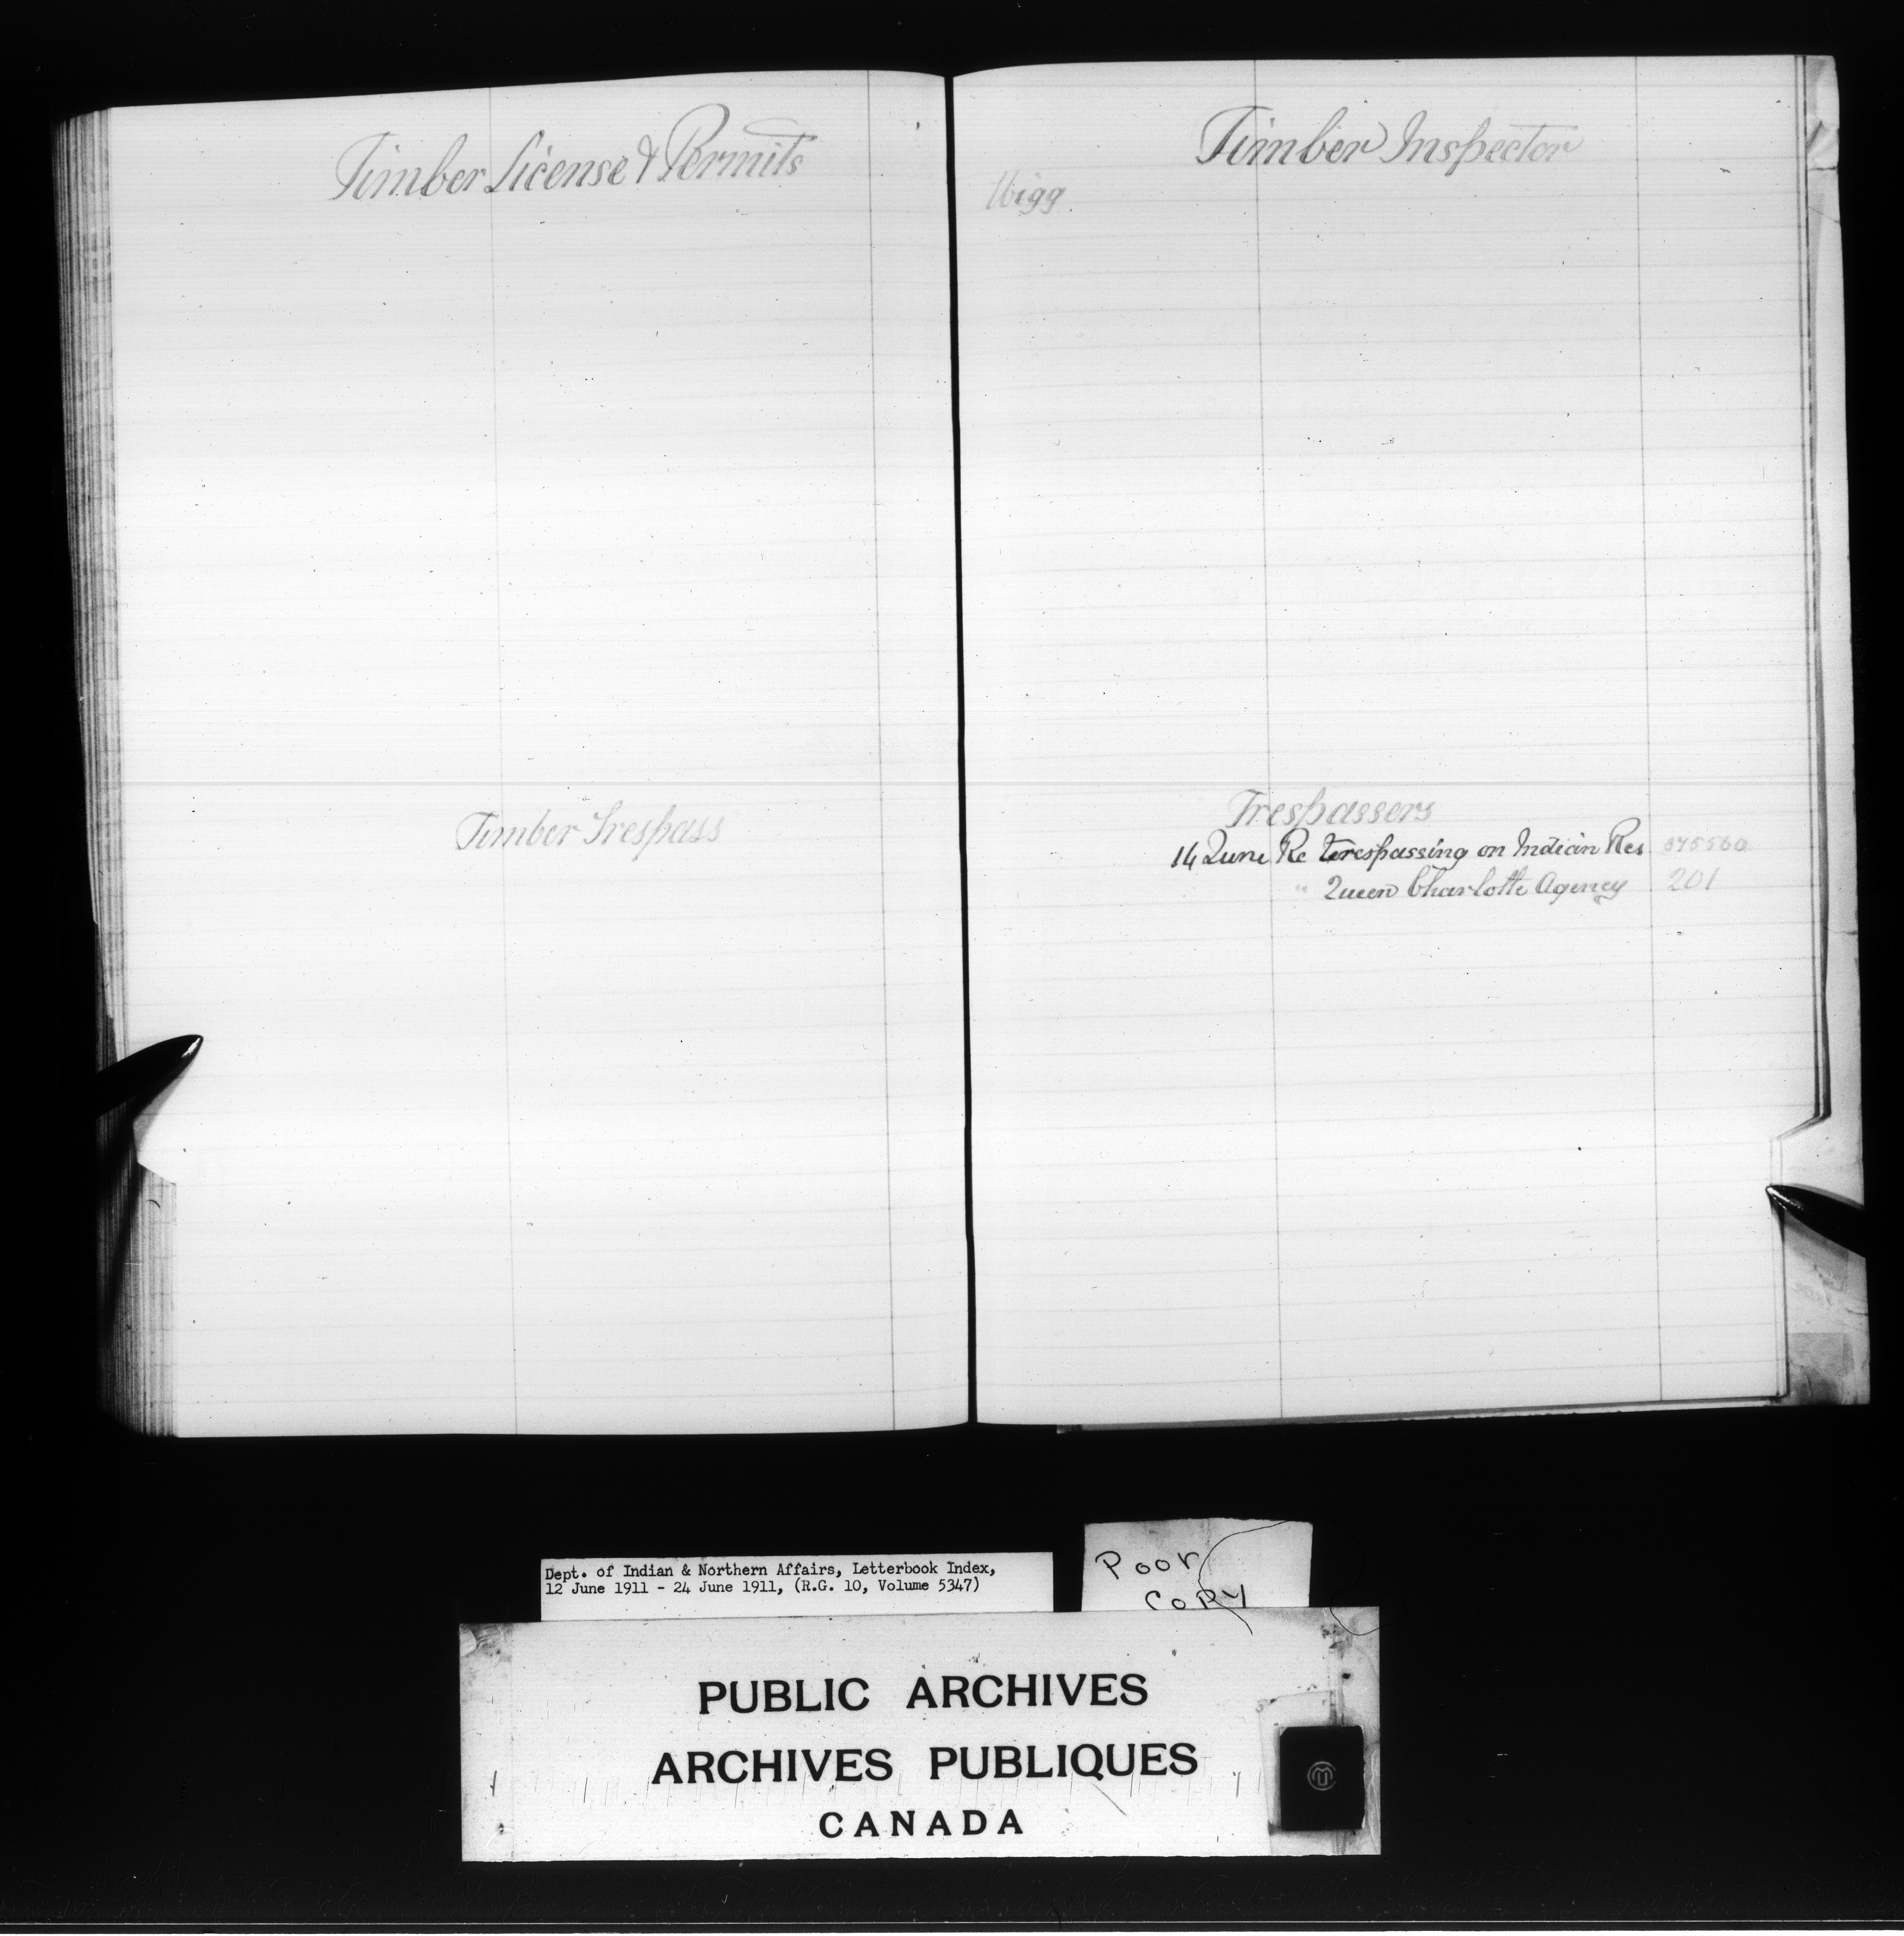 Timber License & Permits
Timber Trespass
Timber Inspector
Trespassers
14 June Re Trespassing on Indian Res
" Queen Charlotte Agency 201
Dept. of Indian & Northern Affairs, Letterbook Index,
12 June 1911 - 24 June 1911, (R.G. 10, Volume 5347)
Poor
Copy
PUBLIC ARCHIVES
ARCHIVES PUBLIQUES
CANADA